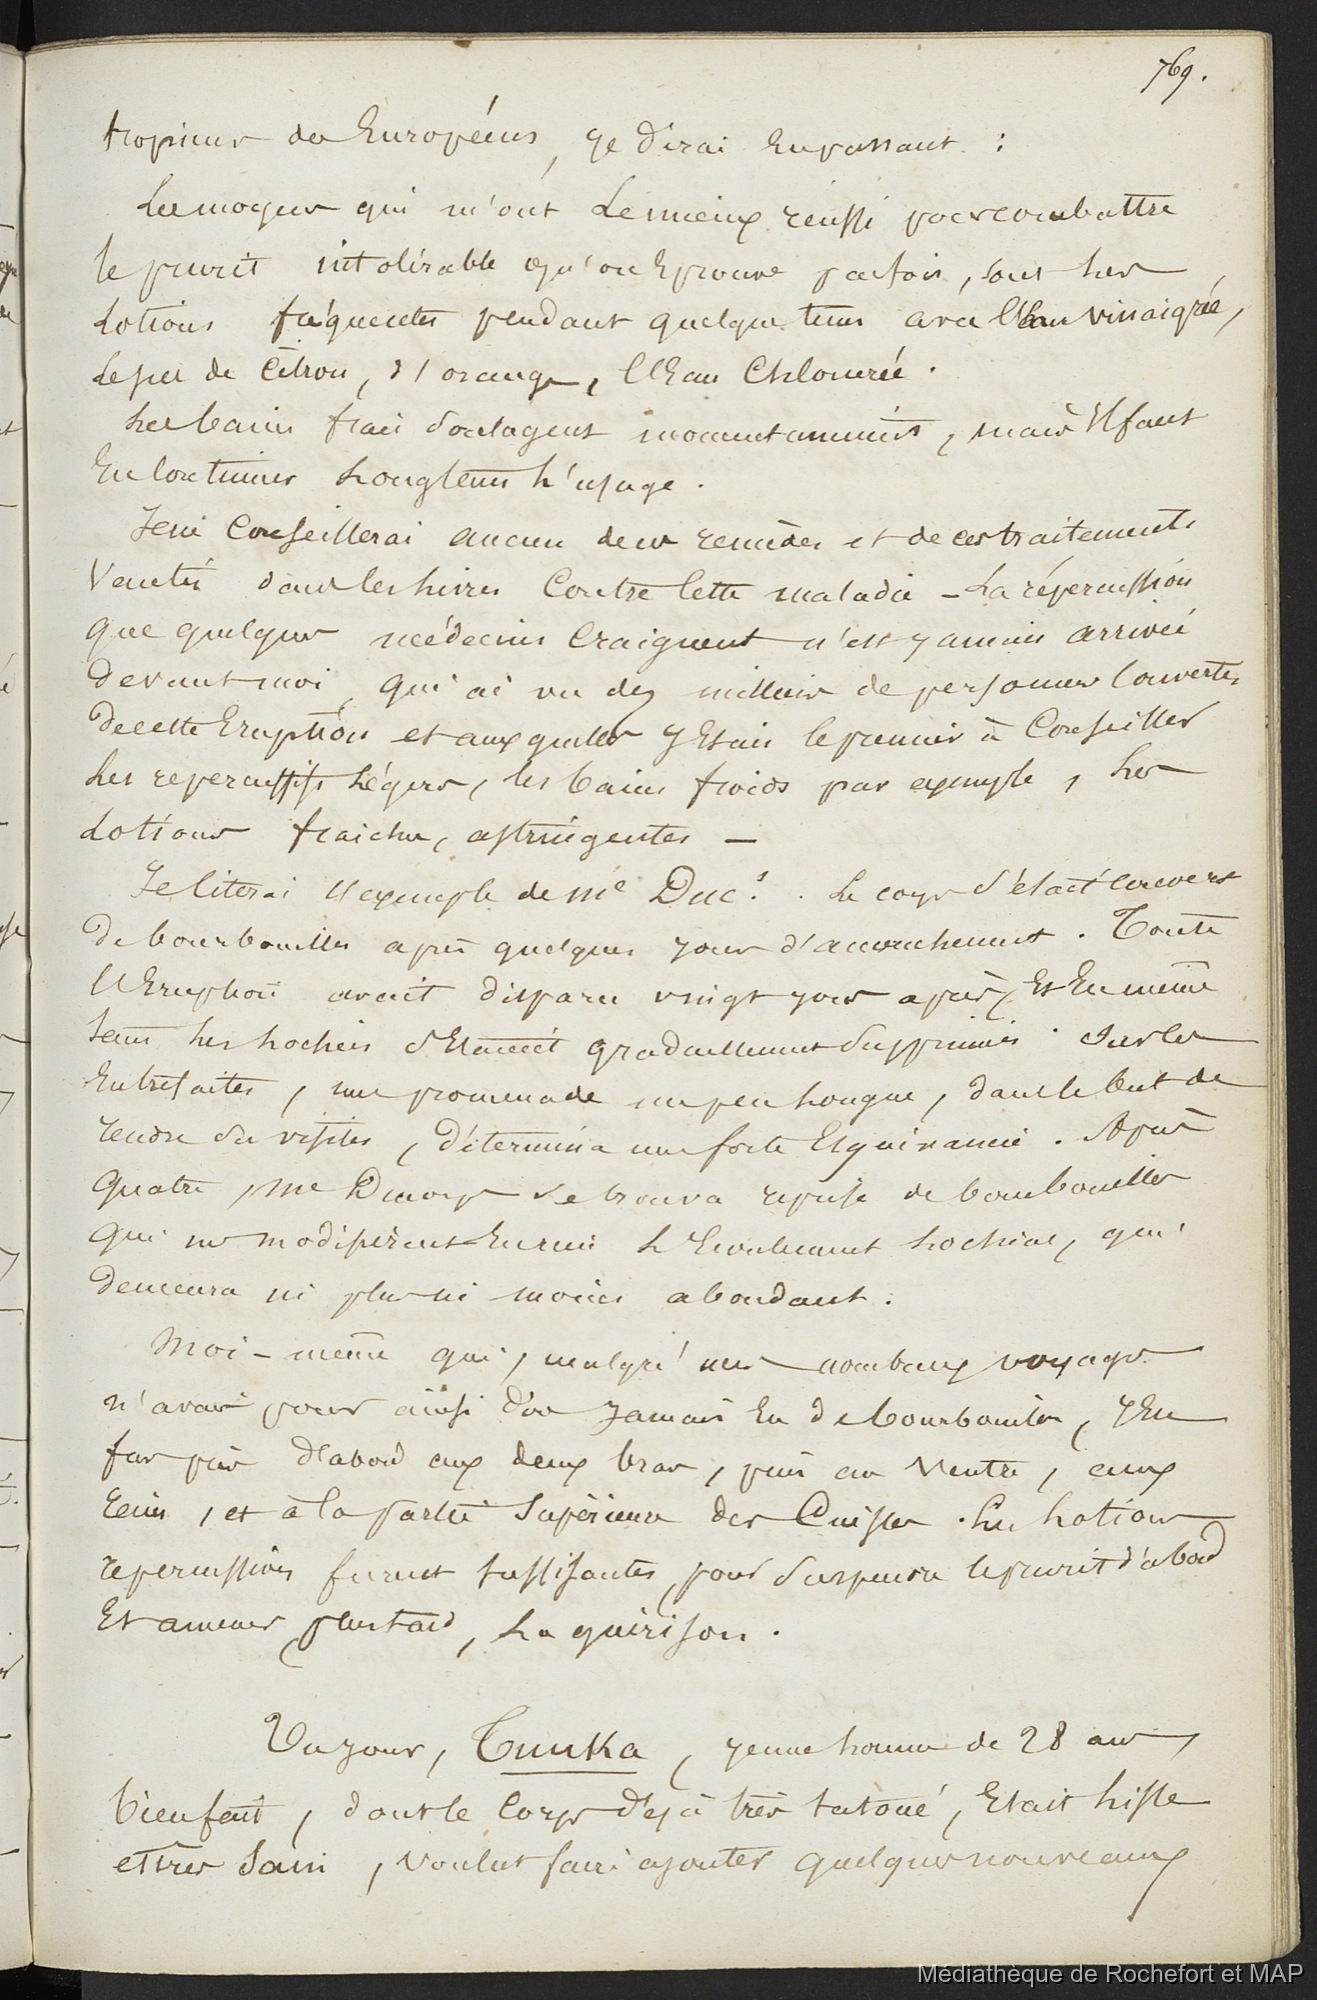 769.
tropicaux des Européens, je dirai en passant :
Les moyens qui m'ont le mieux réussi pour combattre
le prurit intolérable qu'on éprouve parfois, sont les
lotions fréquentes pendant quelque tems avec l'eau vinaigrée,
le jus de citron, d'orange, l'eau chlorurée.
Les bains frais soulagent momentanément, mais il faut
en continuer longtems l'usage.
Je ne conseillerai aucun de ces remèdes et de ces traitements
vantés dans les livres contre cette maladie - La répercussion
que quelques médecins craignent n'est jamais arrivée
devant moi, qui ai vu des milliers de personnes couvertes
de cette éruption et auxquelles j'étais le premier à conseiller
les repercussifs légers, les bains froids par exemple, les
lotions fraiches, astringentes —
Je citerai l'exemple de Me Duc.s. Le corps s'était couvert
de bourbouilles après quelques jours d'accouchement. Toute
l'éruption avait disparu vingt jours après, et en même
tems les lochies s'étaient graduellement supprimées. Sur ces
entrefaites, une promenade un peu longue, dans le but de
rendre des visites, détermina une forte esquinancie. Après
quatre, Me Ducorps se trouva reprise de bourbouilles
qui ne modifièrent en rien l'écoulement lochial, qui
demeura ni plus ni moins abondant.
Moi-même qui, malgré mes nombreux voyages
n'avais pour ainsi dire jamais eu de bourbouilles, j'en
fus pris d'abord aux deux bras, puis au ventre, aux
reins, et à la partie supérieure des cuisses. Les lotions
repercussives furent suffisantes pour suspendre le prurit d'abord
et amener plus tard, la guérison.
Un jour, Tunka, jeune homme de 28 ans,
bien fait, dont le corps déjà très tatoué, était lisse
et très sain, voulut faire ajouter quelques nouveaux
Médiathèque de Rochefort et MAP